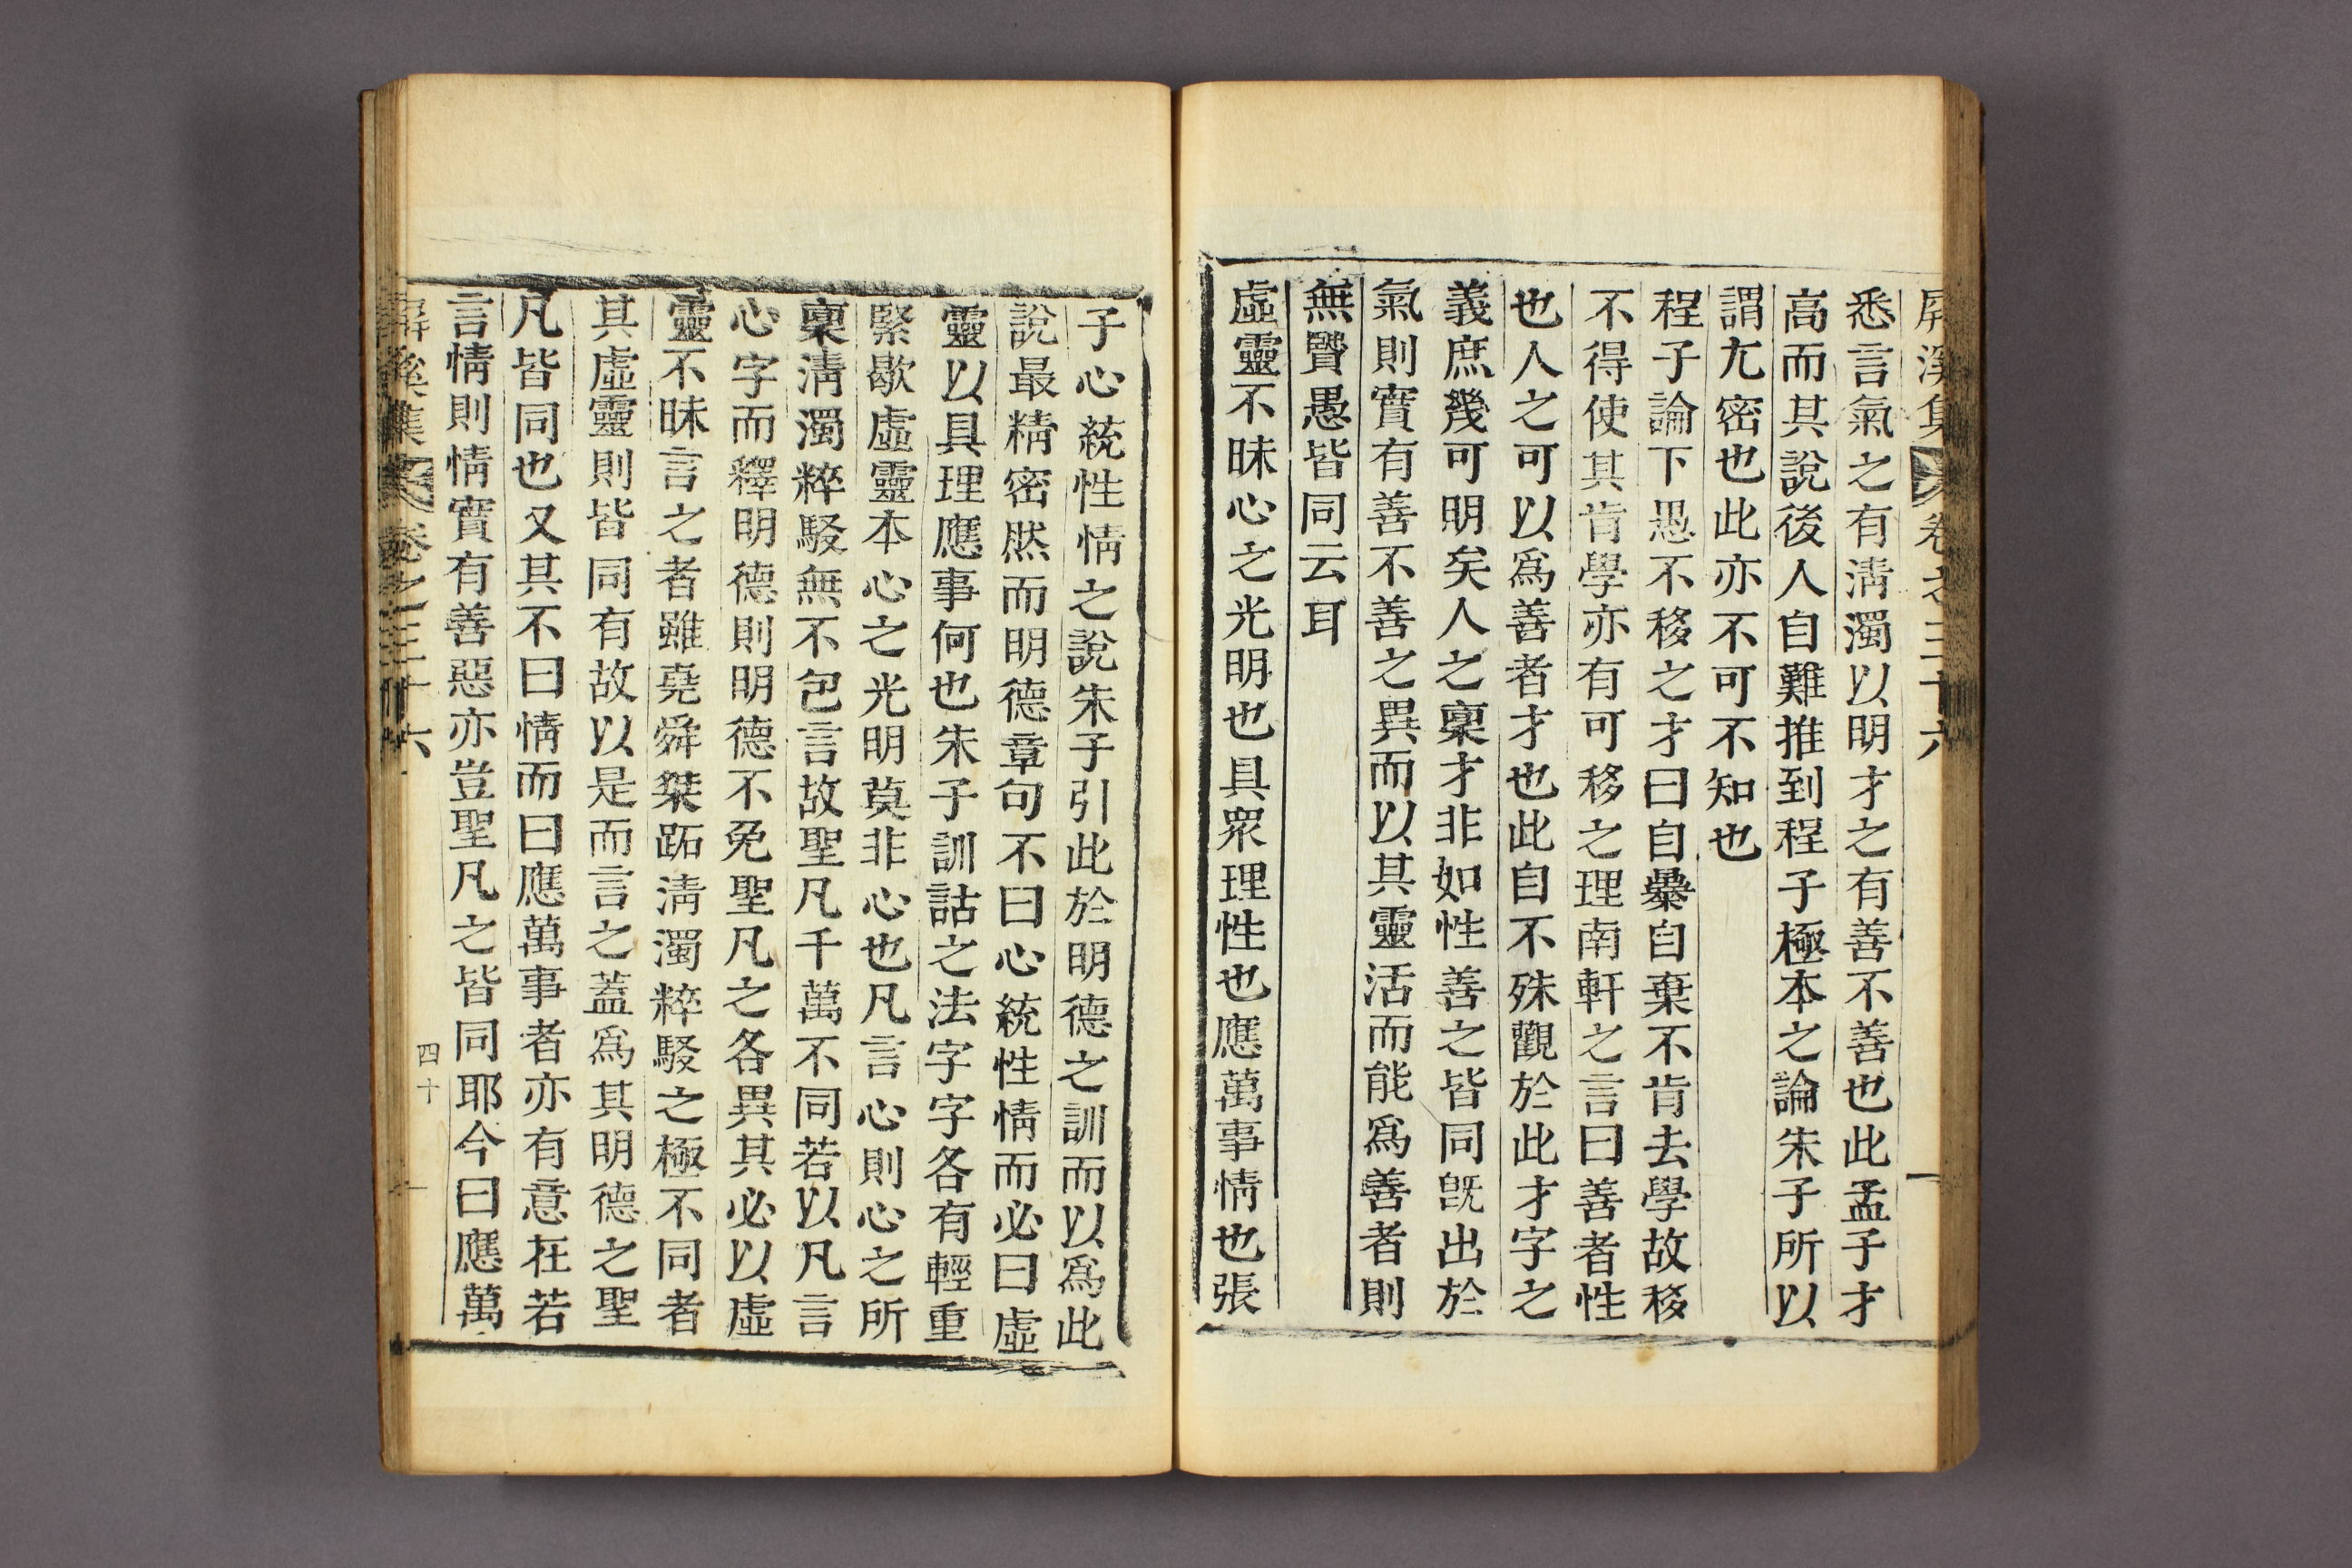 屛溪集 卷之三十六
悉言氣之有淸濁以明才之有善不善也此孟子才
高而其說後人自難推到程子極本之論朱子所以
謂尤密也此亦不可不知也
程子論下愚不移之才曰自暴自棄不肯去學故移
不得使其肯學亦有可移之理南軒之言曰善者性
也人之可以爲善者才也此自不殊觀於此才字之
義庶幾可明矣人之稟才非如性善之皆同旣出於
氣則實有善不善之異而以其靈活而能爲善者則
無賢愚皆同云耳
虛靈不昧心之光明也具衆理性也應萬事情也張
子心統性情之說朱子引此於明德之訓而以爲此
說最精密然而明德章句不曰心統性情而必曰虛
靈以具理應事何也朱子訓詁之法字字各有輕重
緊歇虛靈本心之光明莫非心也凡言心則心之所
稟淸濁粹駁無不包言故聖凡千萬不同若以凡言
心字而釋明德則明德不免聖凡之各異其必以虛
靈不昧言之者雖堯舜桀跖淸濁粹駁之極不同者
其虛靈則皆同有故以是而言之蓋爲其明德之聖
凡皆同也又其不曰情而曰應萬事者亦有意在若
言情則情實有善惡亦豈聖凡之皆同耶今曰應萬
屛溪集 卷之三十六 四十